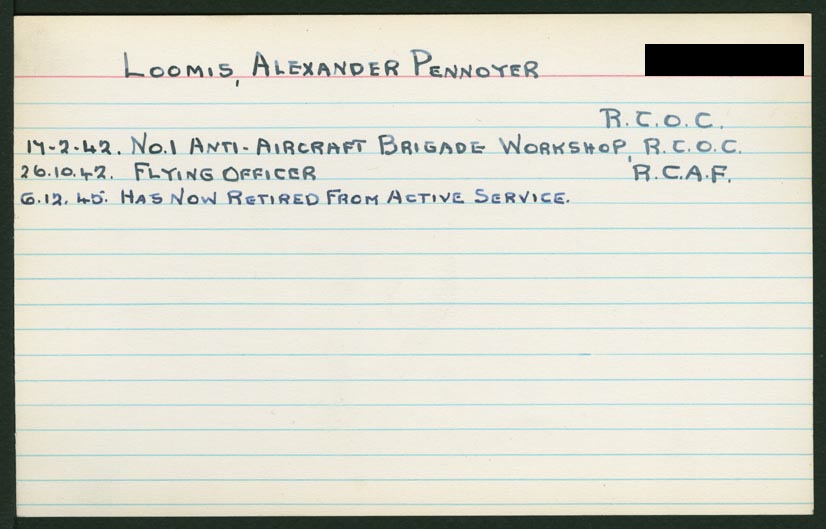 LOOMIS, ALEXANDER PENNOYER
R.C.O.C.
17-2-42. NO.1 ANTI-AIRCRAFT BRIGADE WORKSHOP, R.C.O.C.
26.10.42. FLYING OFFICER R.C.A.F.
6.12.45. HAS NOW RETIRED FROM ACTIVE SERVICE.